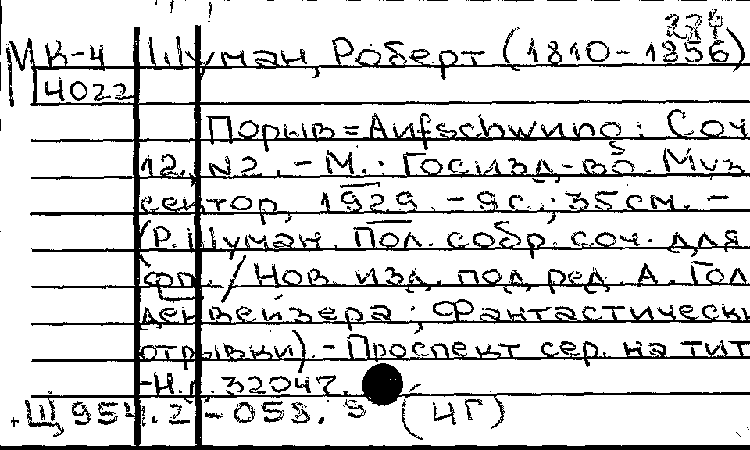 МК-4 Шуман, Роберт (1810-1856)
4022
Порыв = Aufschwung: Соч
12, N2. - М.: Госизд-во. Муз
сектор, 1929. - 9с.; 35см. -
(Р. Шуман. Пол. собр. соч. для
фп. / Нов. изд. под ред. А. Гол
денвейзера; Фантастически
отрывки). - Проспект сер. на тит
-Н.г. 32047.
Щ954.2-058. (4Г)